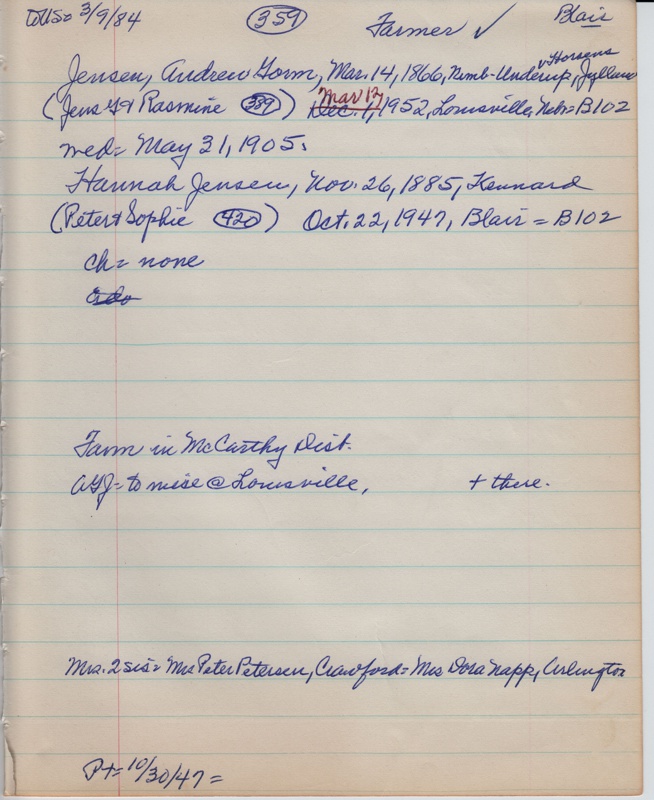 toUS= 3/9/84 359 Farmer ✓ Blair
Jensen, Andrew Gorm, Mar. 14, 1866, Nimb-Underup, v Horsens Jylland
(Jens G & Rasmine 389) Dec. 1, Mar 12, 1952, Louisville, Nebr = B102
med = May 31, 1905.
Hannah Jensen, Nov. 26, 1885, Kennard
(Peter & Sophie 420) Oct. 22, 1947, Blair = B102
Ch = none
Farm in McCarthy Dist.
AGJ = to niese @ Louisville, + there.
Mrs. 2 sis = Mrs Peter Petersen, Crawford = Mrs Dora Napp, Arlington
Pt = 10/30/47 =